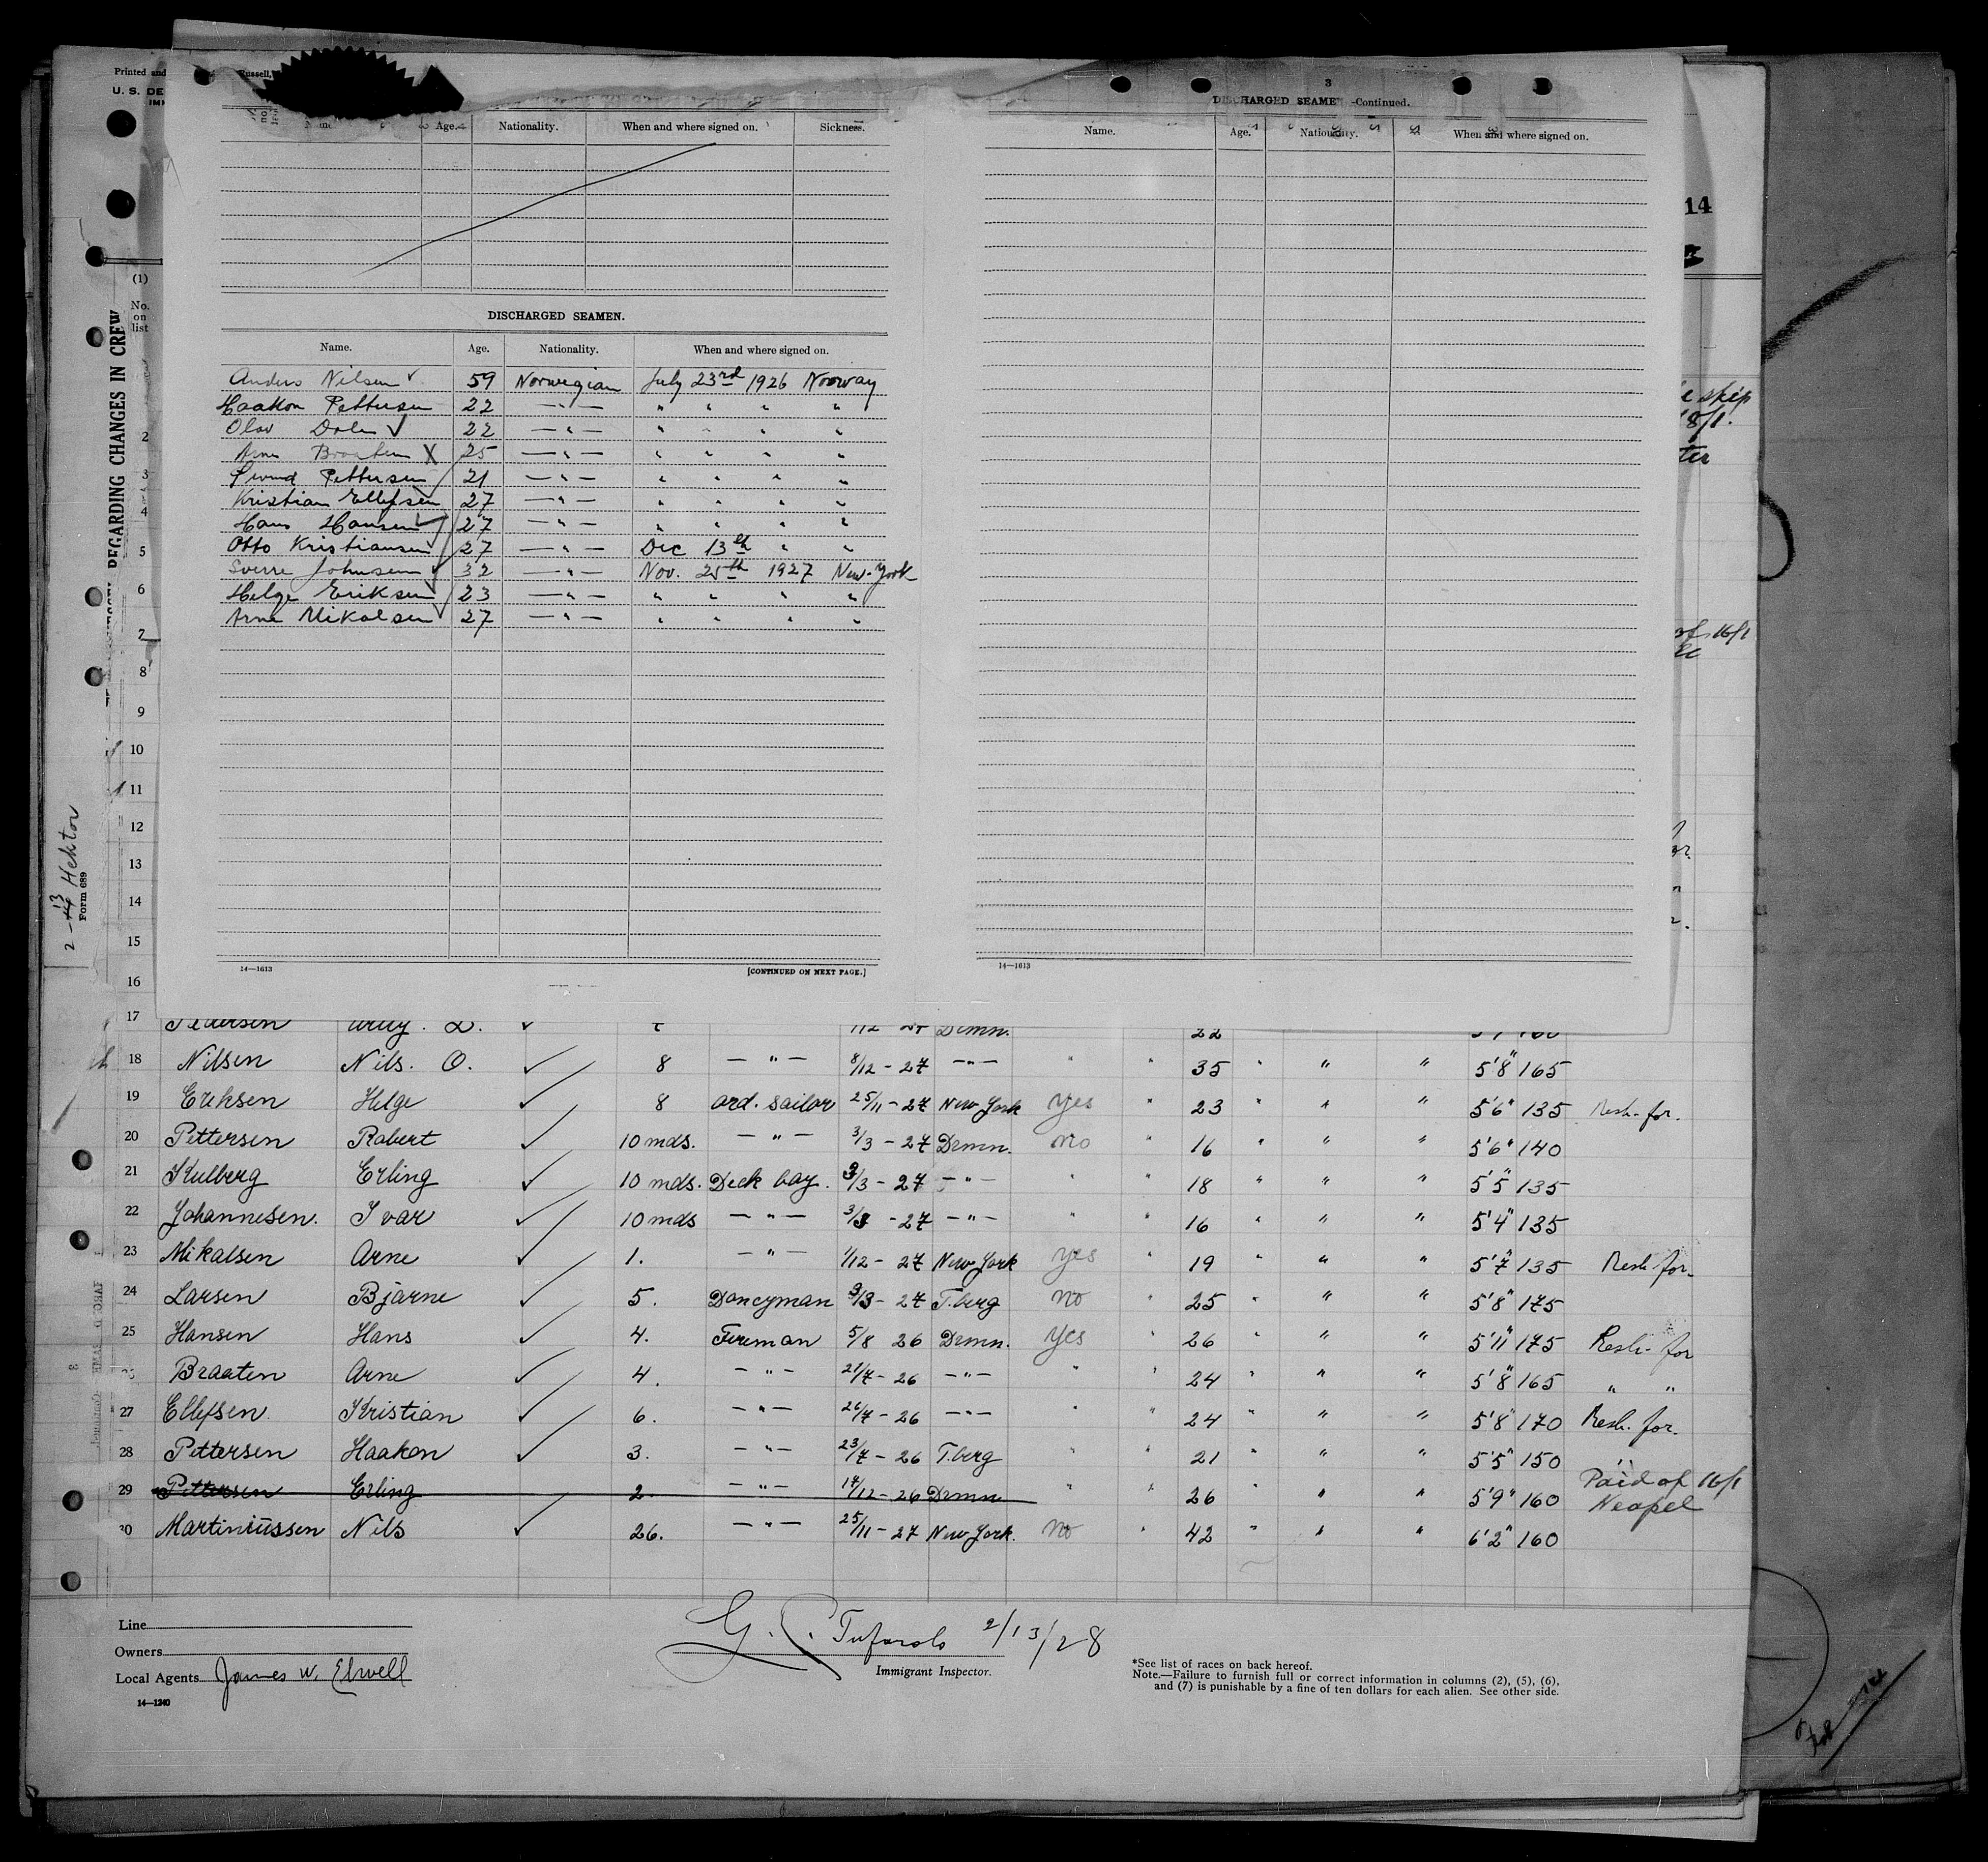 Printed and
Russell,
U. S. DE
IMM
Name. Age. Nationality. When and where signed on. Sickness.
DISCHARGED SEAMEN.
Name. Age. Nationality. When and where signed on.
Anders Nilsen ✓ 59 Norwegian July 23rd 1926 Norway
Haakon Pettersen 22 — " — " " " "
Olav Dalen ✓ 22 — " — " " " "
Arne Braaten X 25 — " — " " " "
Pettersen 21 — " — " " " "
Kristian Ellefsen 27 — " — " " " "
Hans Hansen ✓ 27 — " — " " " "
Otto Kristiansen 27 — " — Dec 13th " "
Sverre Johnsen ✓ 32 — " — Nov. 25th 1927 New-York
Helge Eriksen 23 — " — " " " "
Arne Mikalsen ✓ 27 — " — " " " "
14—1613 [CONTINUED ON NEXT PAGE.]
3
DISCHARGED SEAME -Continued.
Name. Age. Nationality. When and where signed on.
14—1613
REGARDING CHANGES IN CREW
2 - 13 Hektor
Form 689
(1)
No. on list
2
3
4
5
6
7
8
9
10
11
12
13
14
15
16
14
e ship
18/1.
of 16/1
17 Pedersen D. ✓ 22
18 Nilsen Nils. O. ✓ 8 — " — 8/12 - 27 — " — " " 35 " " " 5'8" 165
19 Eriksen Helge ✓ 8 ord. sailor 25/11 - 27 New York Yes " 23 " " " 5'6" 135 Resh. for.
20 Pettersen Robert ✓ 10 mds. — " — 3/3 - 27 Drmn. No " 16 " " " 5'6" 140
21 Kulberg Erling ✓ 10 mds. Deck boy. 3/3 - 27 — " — " " 18 " " " 5'5" 135
22 Johannesen. Ivar ✓ 10 mds — " — 3/3 - 27 — " — " " 16 " " " 5'4" 135
23 Mikalsen Arne ✓ 1. — " — 1/12 - 27 New York Yes " 19 " " " 5'7" 135 Resh for.
24 Larsen Bjarne ✓ 5. Doneyman 3/3 - 27 T.berg No " 25 " " " 5'8" 175
25 Hansen Hans ✓ 4. Fireman 5/8 26 Drmn. Yes " 26 " " " 5'11" 175 Resh. for
Braaten Arne ✓ 4. — " — 21/7 - 26 — " — " " 24 " " " 5'8" 165 " "
27 Ellefsen Kristian ✓ 6. — " — 26/7 - 26 — " — " " 24 " " " 5'8" 170 Resh. for.
28 Pettersen Haakon ✓ 3. — " — 23/7 - 26 T.berg " " 21 " " " 5'5" 150 "
29 Pettersen Erling 2. — " — 17/12 - 26 Drmn " " 26 " " " 5'9" 160 Paid of 16/1 Neapel
30 Martiniussen Nils ✓ 26. — " — 25/11 - 27 New York. No " 42 " " " 6'2" 160
Line
Owners
Local Agents James W. Elwell
14—1240
G. P. Tufarolo 2/13/28
Immigrant Inspector.
*See list of races on back hereof.
Note.—Failure to furnish full or correct information in columns (2), (5), (6),
and (7) is punishable by a fine of ten dollars for each alien. See other side.